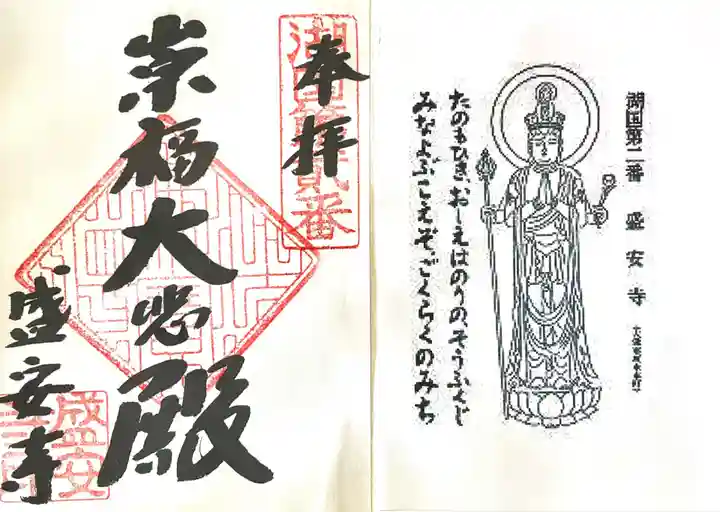 奉拝
湖国第貳番
崇福大悲殿
盛安寺
盛安
湖国第二番 盛安寺
たのもひき、おしえはのりの、そうふくじ
みなよぶこえぞ、ごくらくのみち